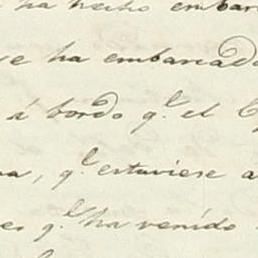 ha hecho embar
se ha embarcado
á bordo q.e el C
na, q.e estuviese a
es q.e ha venido